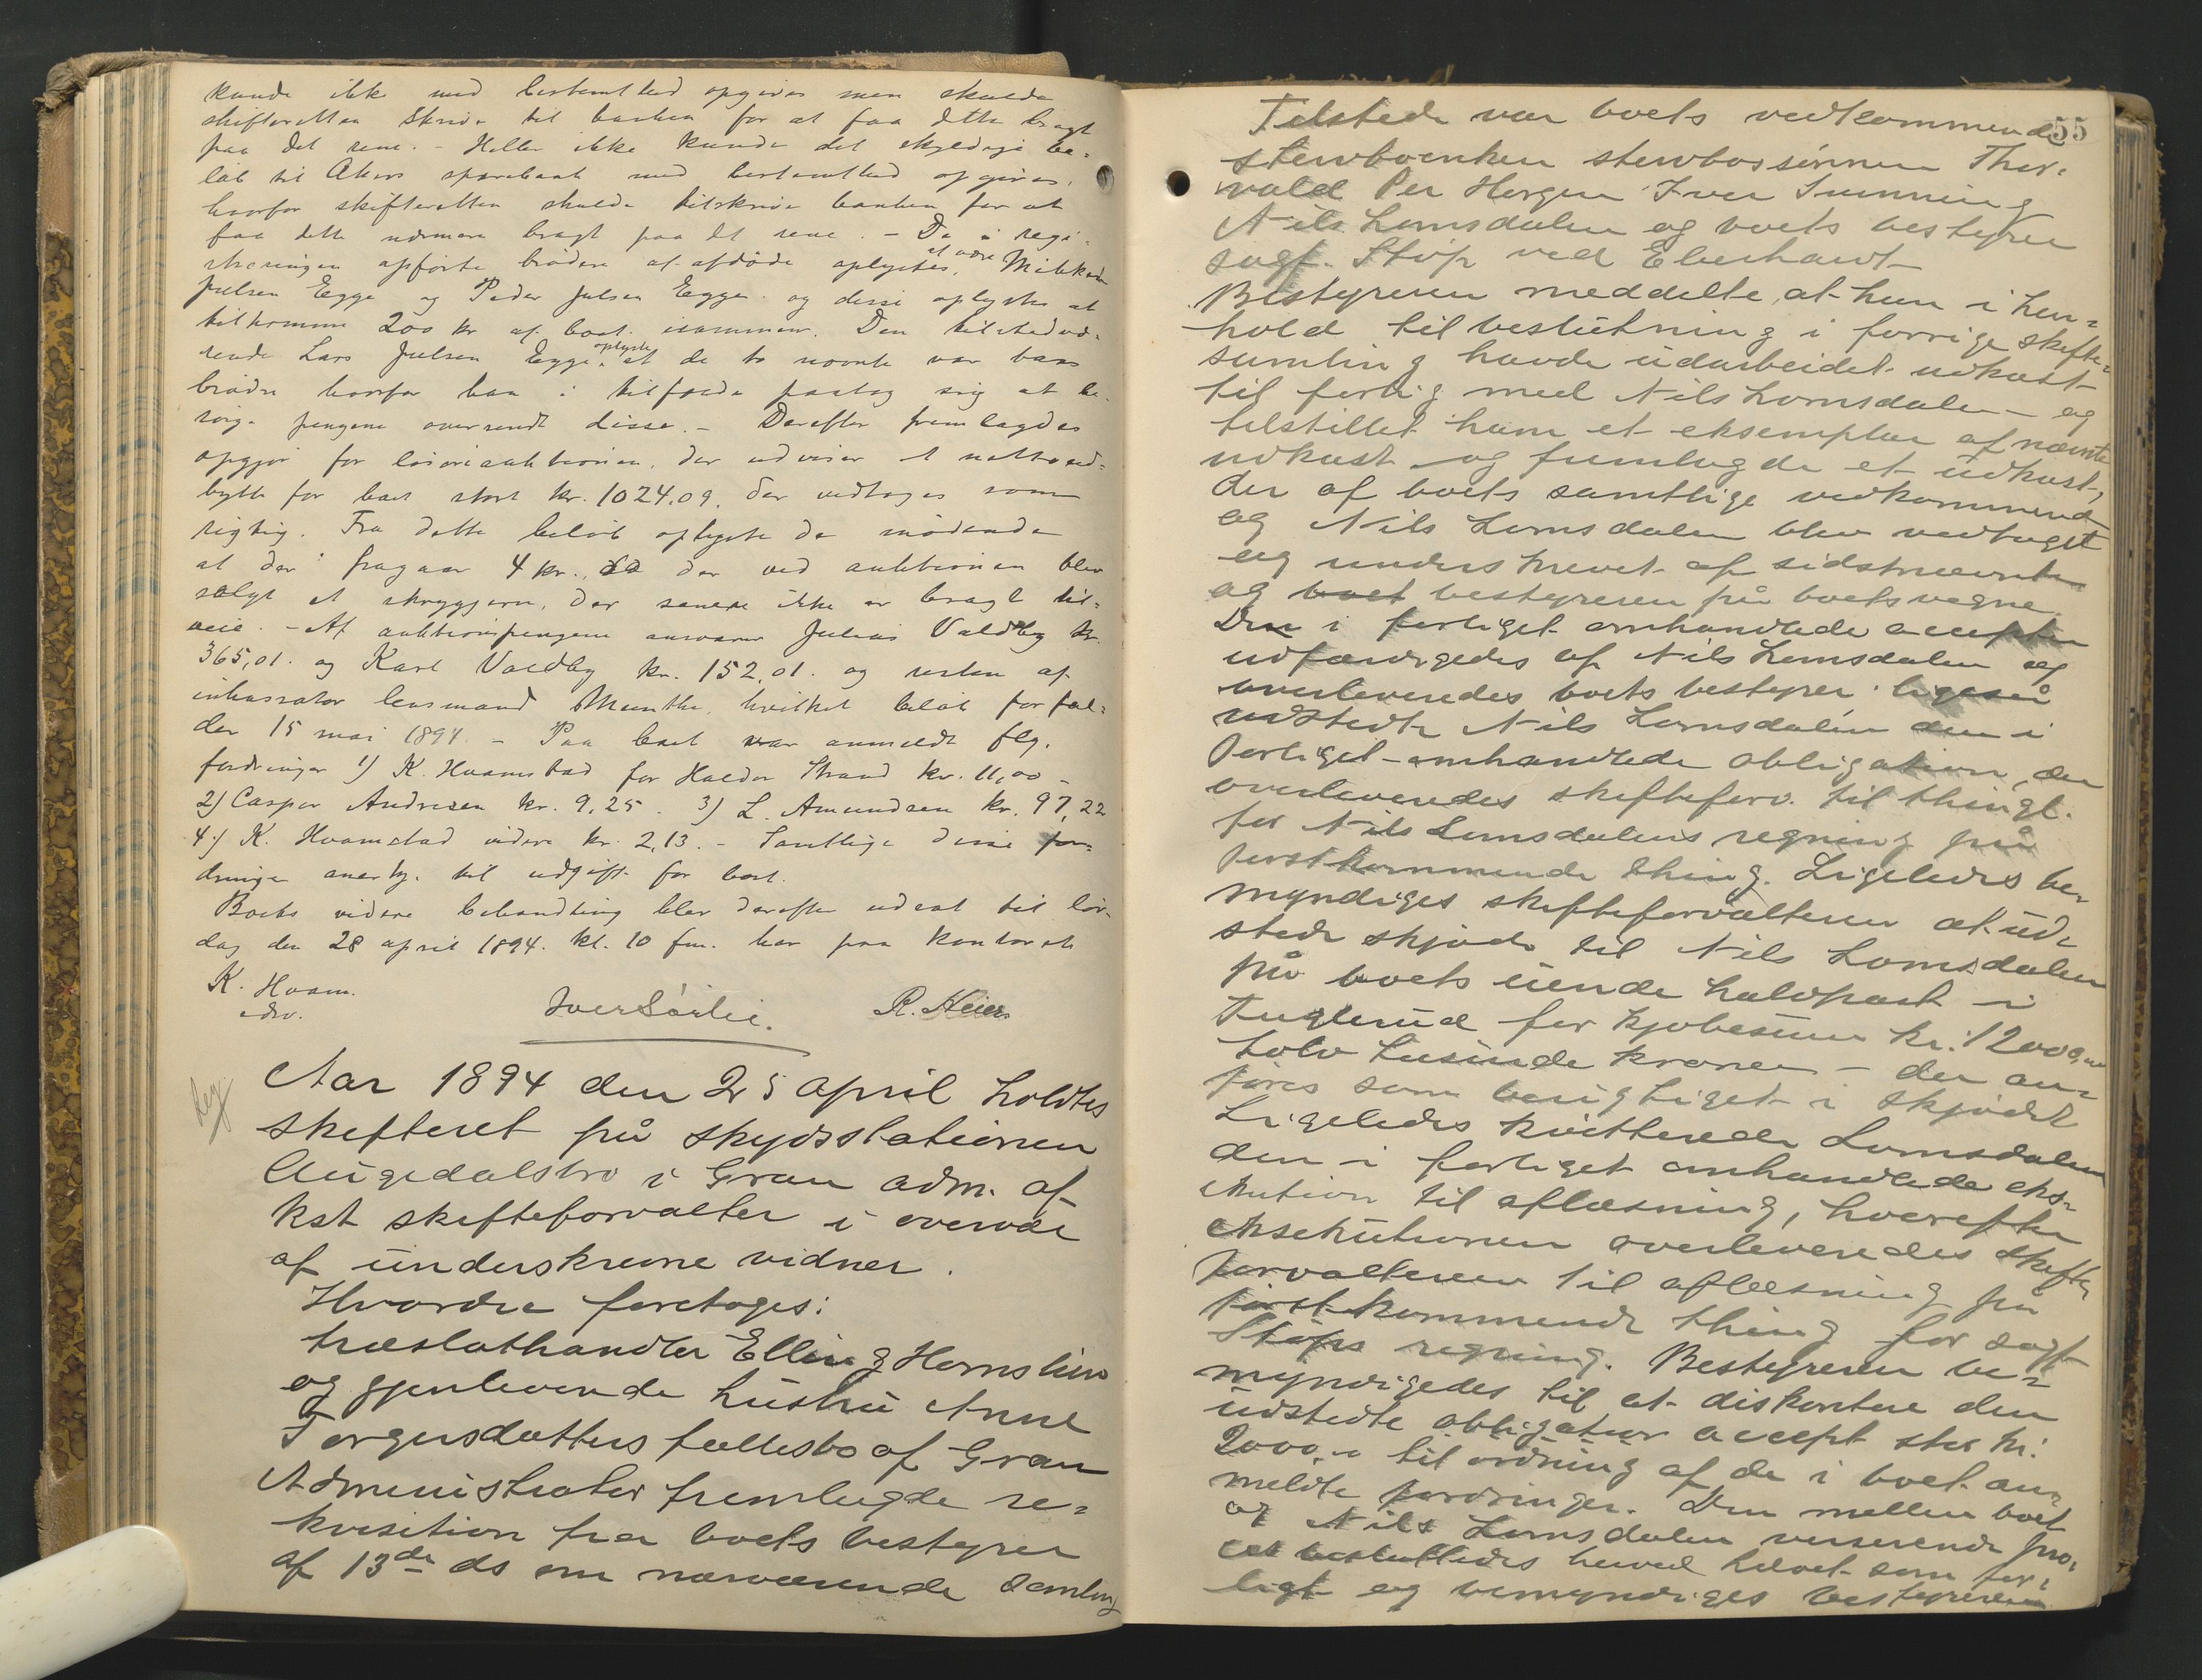 kunde ikke med bestemthed opgives men skulde
skifteretten skrive til banken for at faa dette bragt
paa det rene. - Heller ikke kunde det skyldige be-
løb til Akers sparebank med bestemthed opgives,
hvorfor skifteretten skulde tilskrive banken for at
faa dette nærmere bragt paa det rene. - De i regi-
streringen opførte brødre af afdøde oplystes at være
Julsen Egge og Peder Julsen Egge og disse oplystes at
tilkomme 200 kr af boet isammen. Den tilstedevæ-
rende Lars Julsen Egge oplyste at de to nævnte var hans
brødre hvorfor han i tilfælde paatog sig at be-
sørge pengene oversendt disse. - Derefter fremlagdes
opgjør for løsøreauktionen, der udviser et nettoud-
bytte for boet stort kr. 1024,09, der vedtoges som
rigtig. Fra dette beløb oplyste de mødende
at der fragaar 4 kr. der ved auktionen blev
solgt et skryggjern, der senere ikke er bragt til-
veie. - Af auktionspengene ansvarer Julius Valdby kr.
365,01. og Karl Valdby kr. 152,01. og resten af
inkassator lensmand Munthe, hvilket beløb forfal-
der 15 mai 1894. - Paa boet var anmeldt flg.
fordringer 1) K. Hvamstad for Haldor Strand kr. 11,00 -
2) Casper Andresen kr. 9,25. 3) L. Amundsen kr. 97,22
4) K. Hvamstad videre kr. 2,13. - Samtlige disse for-
dringer anerkj. til udgift for boet.
Boets videre behandling blev derefter udsat til lør-
dag den 28 april 1894. kl. 10 fm. her paa kontoret
K. Hvam.
edsv.
Iver Sørlie. R. Heier.
Aar 1894 den 25 april holdtes
skifteret på skydsstationen
Augedalsbro i Gran adm. af
kst skifteforvalter i overvær
af underskrevne vidner.
Hvorda foretoges:
træslathandler Elling Hornslien
og gjenlevende hustru Anne
Torgersdatters fællesbo af Gran
Administrator fremlagde re-
kvisition fra boets bestyrer
af 13de ds om nærværende samling
55
Tilstede var boets vedkommende
stervboenken stervbossønnen Thor-
vald Per Horgen Iver
Nils Lomsdalen og boets bestyrer
sagf. Støp ved Eberhardt
Bestyreren meddelte, at han i hen-
hold til beslutning i forrige skifte-
samling havde udarbeidet udkast
til forlig med Nils Lomsdalen - og
tilstillet ham et eksemplar af nævnte
udkast og fremlagde et udkast,
der af boets samtlige vedkommende
og Nils Lomsdalen blev vedtaget
og underskrevet af sidstnævnte
og boet bestyreren på boets vegne.
Den i forliget omhandlede accepten
udfærdigedes af Nils Lomsdalen og
overleveredes boets bestyrer ligeså
udstedte Nils Lomsdalen den i
forliget omhandlede obligation, der
overleveredes skifteforv. til thingl.
for Nils Lomsdalens regning på
førstkommende thing. Ligeledes be-
myndiges skifteforvalteren at ud-
stede skjøde til Nils Lomsdalen
på boets eiende halvpart i
Fuglerud for kjøbesum kr. 12000,00
tolv tusinde kroner - der an-
føres som berigtiget i skjødet
Ligeledes kvitterede Lomsdalen
den i forliget omhandlede eks-
ekution til aflæsning, hvorefter
eksekutionen overleveredes skifte-
forvalteren til aflæsning på
førstkommende thing for sagf.
Støps regning. Bestyreren be-
myndigedes til at diskontere den
udstedte obligation accept stor kr.
2000,- til ordning af de i boet an-
meldte fordringer. Den mellem boet
og Nils Lomsdalen verserende pro-
ces besluttedes herved hævet som for-
ligt og bemyndiges bestyreren